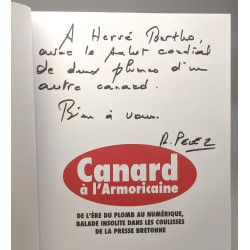 A Hervé Bertho,
avec le salut cordial
de deux plumes d'un
autre canard.
Bien à vous.
R. Perez
Canard
à l'Armoricaine
DE L'ÈRE DU PLOMB AU NUMÉRIQUE,
BALADE INSOLITE DANS LES COULISSES
DE LA PRESSE BRETONNE